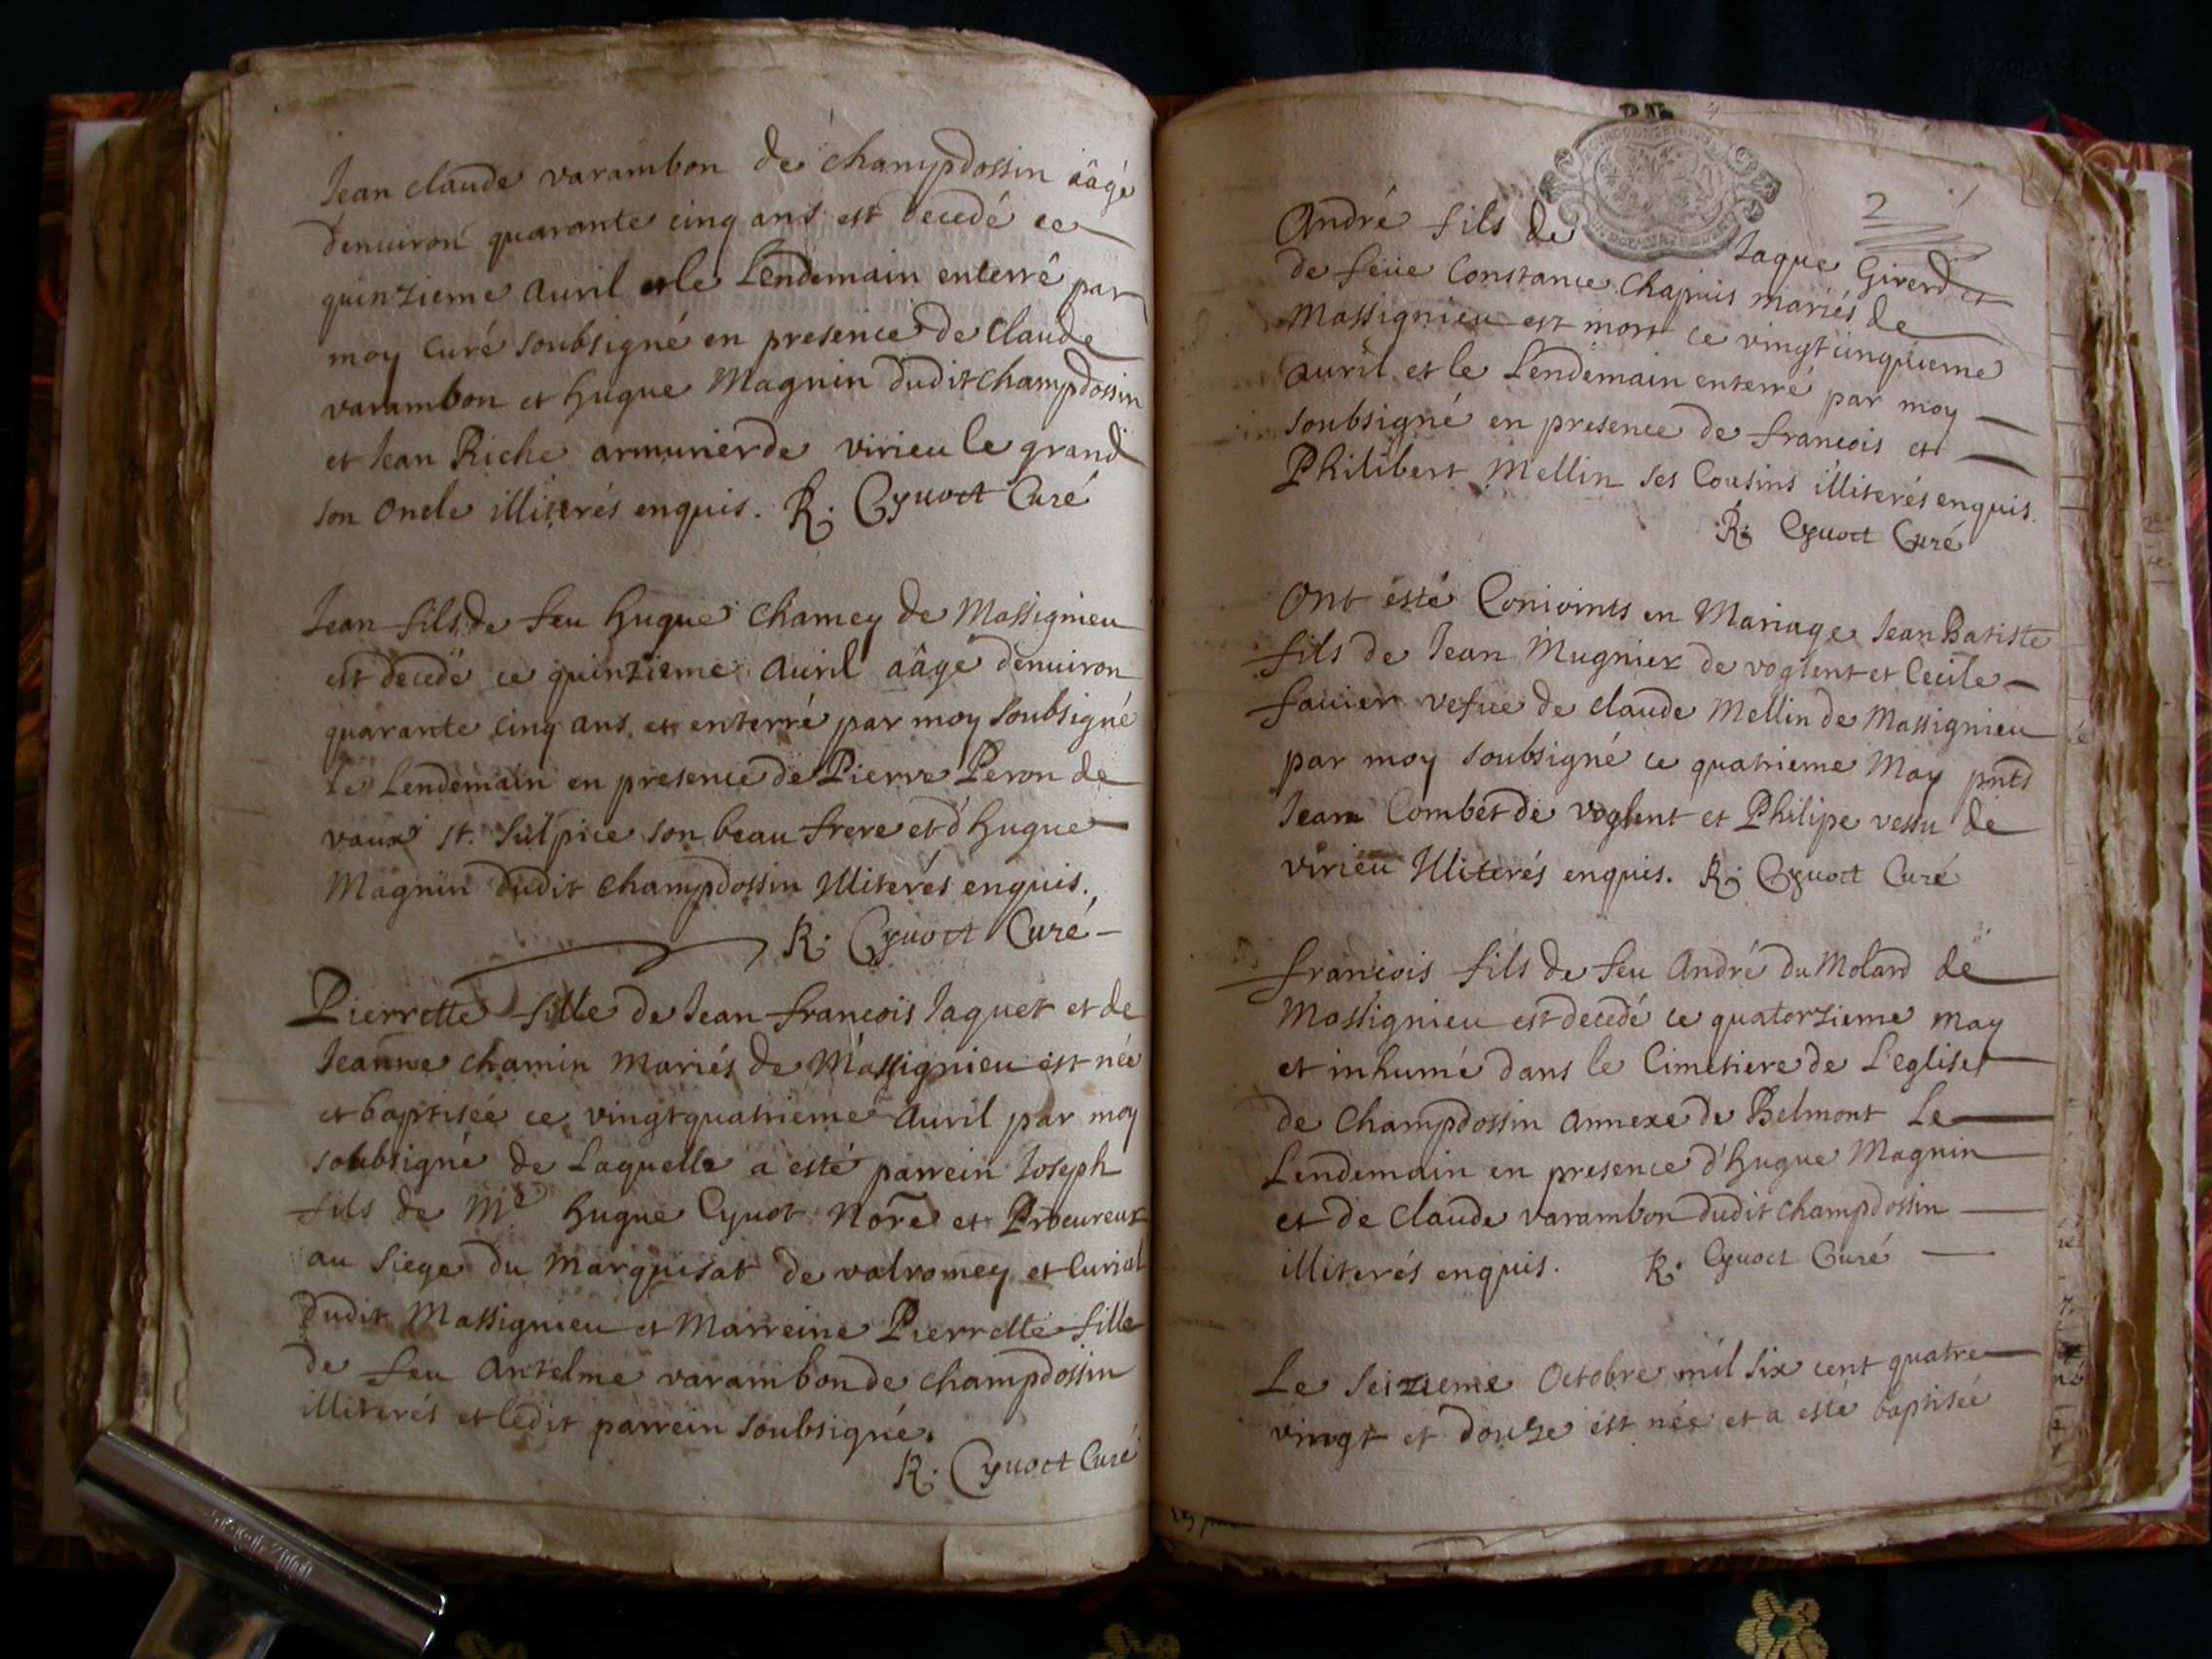 Jean claude varambon de champdossin aâgé
denuiron quarante cinq ans est decedé ce
quinzieme auril et le Lendemain enterré par
moy curé soubsigné en presence de claude
varambon et hugue Magnin dudit champdossin
et Jean Riche armurier de virieu le grand
son oncle illiterés enquis. R. Cyuoct Curé
Jean fils de feu hugue Chamey de Massignieu
est decedé ce quinzieme auril aâgé denuiron
quarante cinq ans et enterré par moy soubsigné
le Lendemain en presence de Pierre Peron de
vaux st. Sulpice son beau frere et d'hugue
Magnin dudit champdossin illiterés enquis.
R. Cyuoct Curé
Pierrette fille de Jean francois Jaquet et de
Jeanne chamin mariés de Massignieu est née
et baptisée ce vingt quatrieme auril par moy
soubsigné de Laquelle a esté parrein Joseph
fils de Me hugue Cyuot Nore et Procureur
au siege du marquisat de valromey et Curial
dudit Massignieu et Marreine Pierrette fille
de feu Antelme varambon de champdossin
illiterés et ledit parrein soubsigné.
R. Cyuoct Curé
2
André fils de Jaque Girerd et
de feüe Constance Chapuis mariés de
Massignieu est mort ce vingt cinquieme
auril et le Lendemain enterré par moy
soubsigné en presence de francois et
Philibert Mellin ses Cousins illiterés enquis.
R. Cyuoct Curé
Ont esté Conioints en Mariage Jean Batiste
fils de Jean Mugnier de voglent et Cecile
fauier vefue de claude Mellin de Massignieu
par moy soubsigné ce quatrieme May pnts
Jean Combet de voglent et Philipe vessu de
virieu illiterés enquis. R. Cyuoct Curé
francois fils de feu André du Molard de
Massignieu est decedé ce quatorzieme may
et inhumé dans le Cimetiere de L'eglise
de champdossin annexe de Belmont Le
Lendemain en presence d'hugue Magnin
et de claude varambon dudit champdossin
illiterés enquis. R. Cyuoct Curé
Le seizieme Octobre mil six cent quatre
vingt et douze est née et a esté baptisée